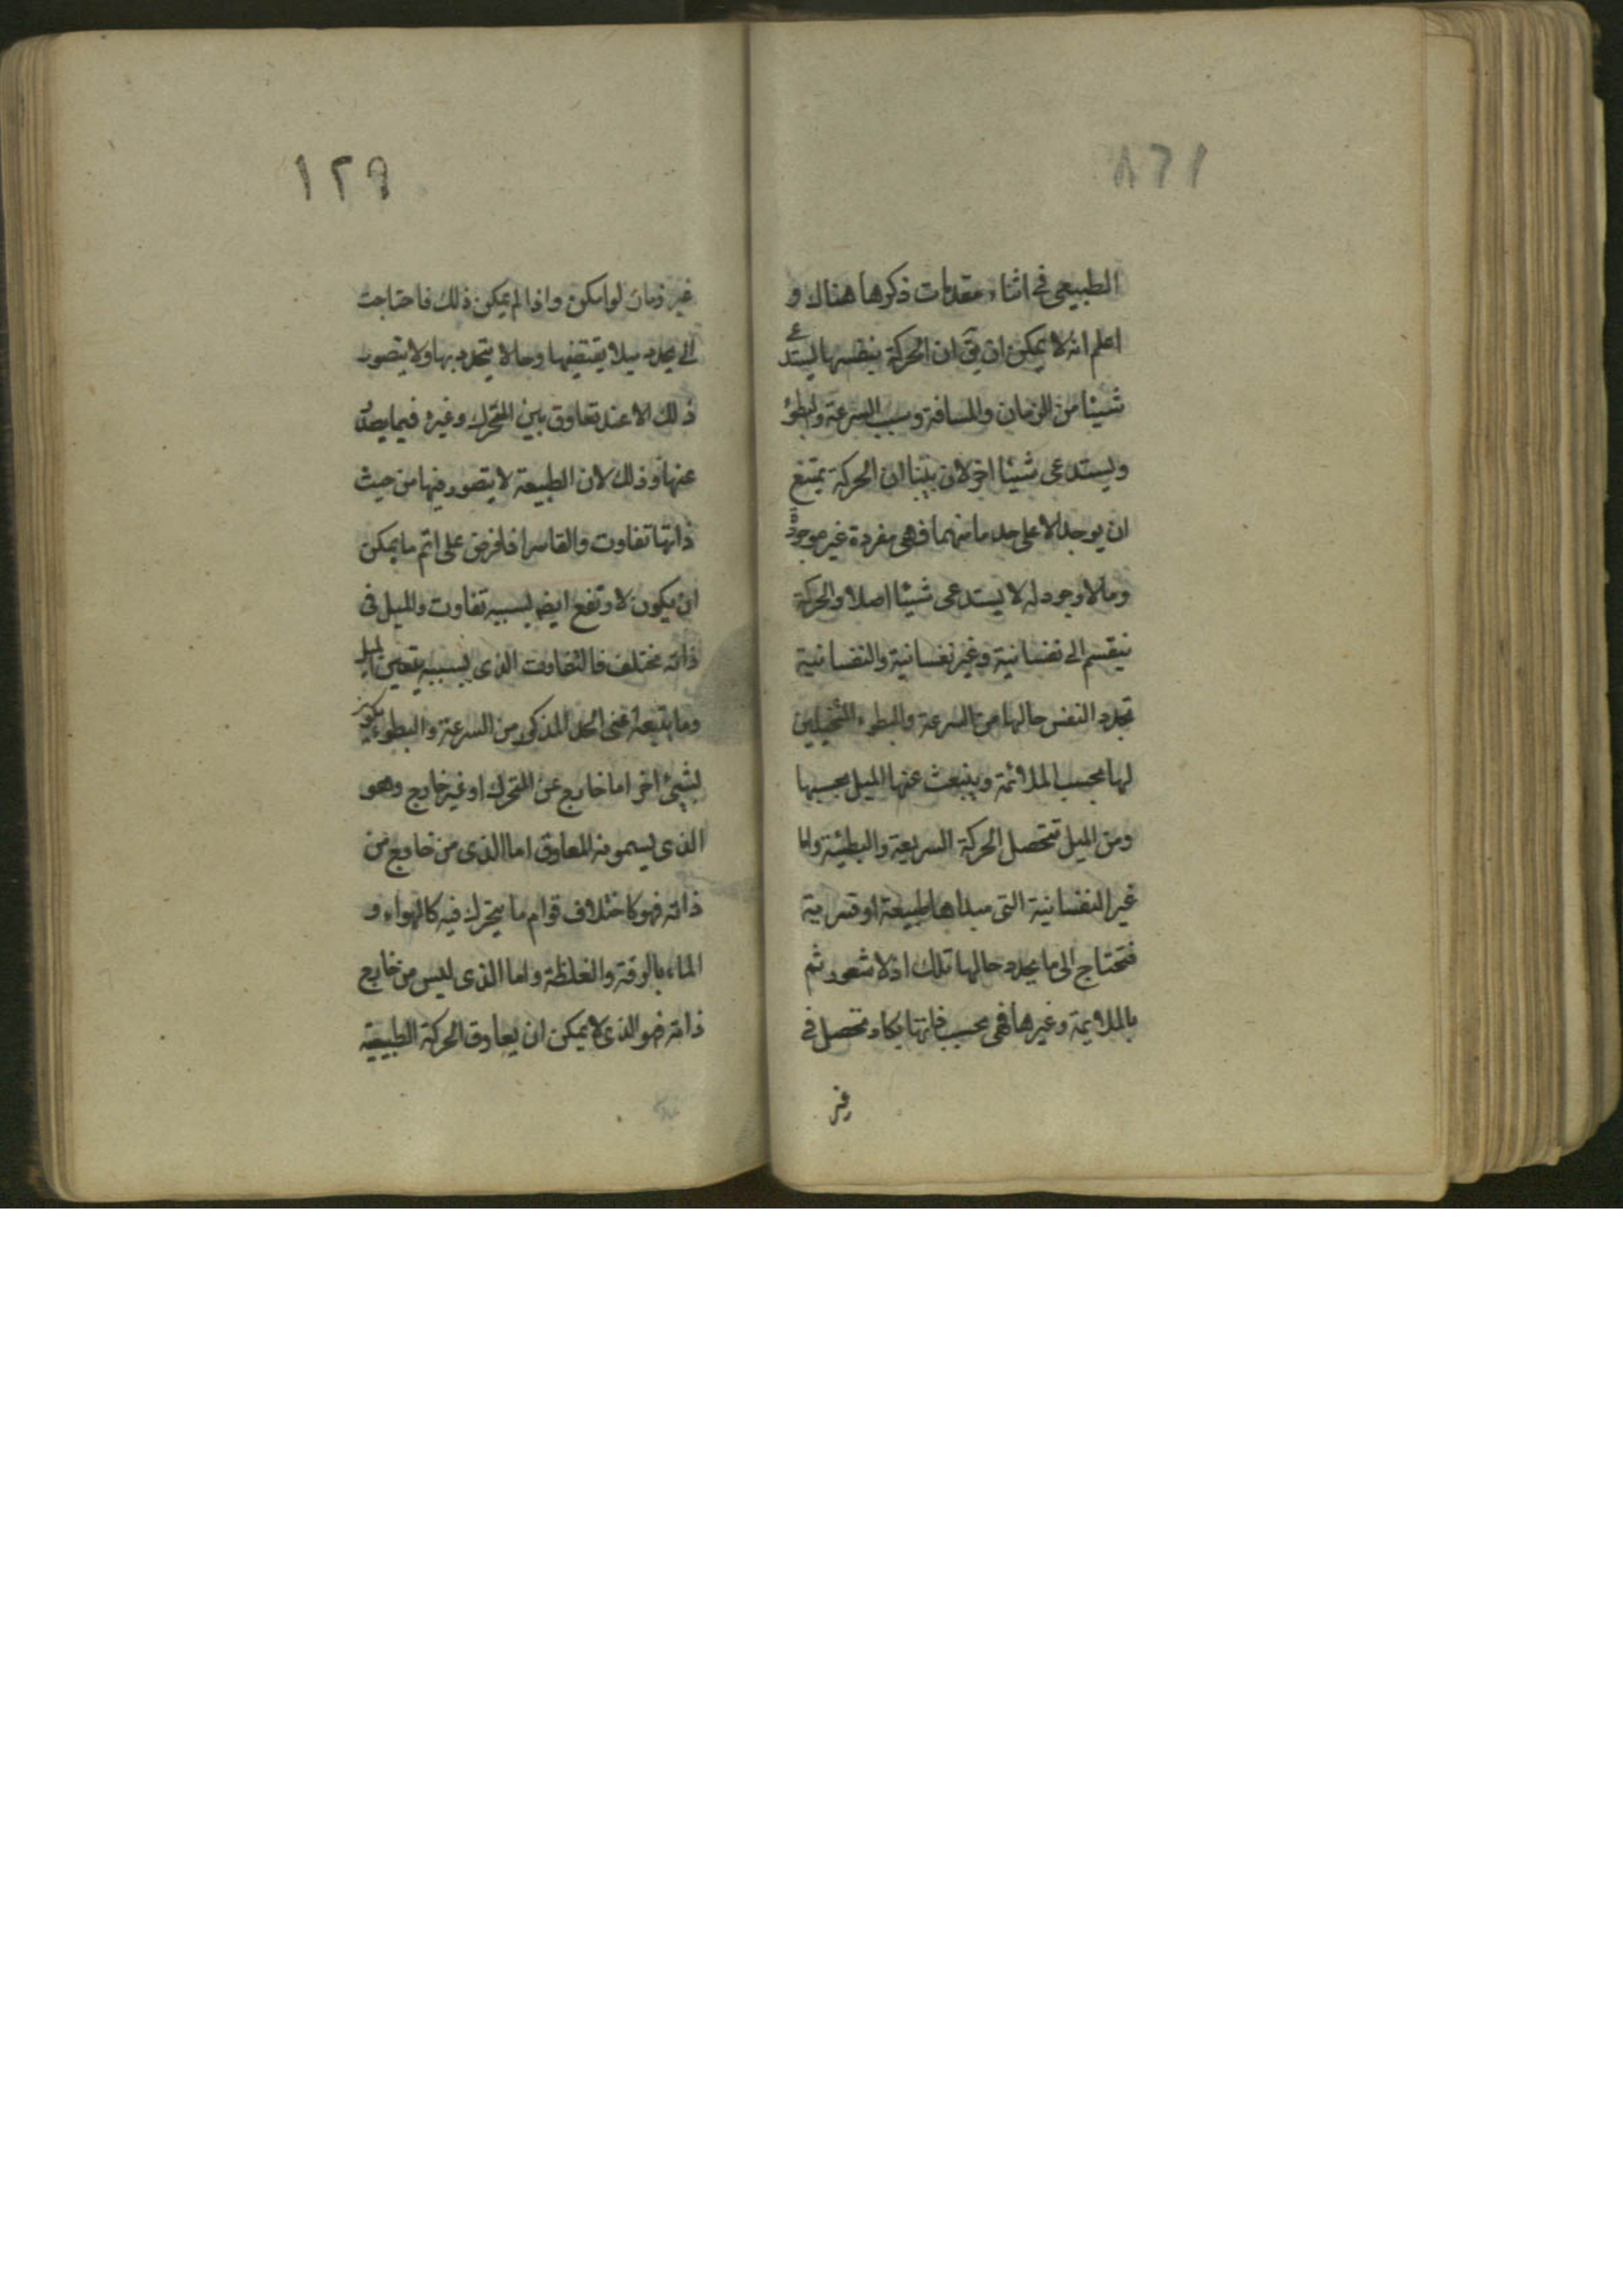 ١٢٨
الطبيعى فى اثناء مقدمات ذكرها هناك و
اعلم انه لا يمكن ان يق ان الحركة بنفسها يستدعى
شيئا من الزمان والمسافة وسبب السرعة والبطؤ
ويستدعى شيئا اخر لان بينا ان الحركة يمتنع
ان يوجد الا على حد ما منهما فهى مفردة غير موجودة
وما لا وجود له لا يستدعى شيئا اصلا والحركة
ينقسم الى نفسانية وغير نفسانية والنفسانية
تحدد النفس حالها من السرعة والبطوء المتخيلين
لها بحسب الملائمة وينبعث عنها الميل بحسبها
ومن الميل تتحصل الحركة السريعة والبطيئة واما
غير النفسانية التى مبداها طبيعة او قسرية
فتحتاج الى ما يحدد حالها تلك اذ لا شعور ثم
بالملايمة وغيرها فهى بحسب ذاتها يكاد تحصل فى
غير
١٢٩
غير زمان لو امكن واذا لم يمكن ذلك فاحتاجت
الى تحدد ميلا يقتضيها وحالا يتحدد بها ولا يتصور
ذلك الا عند تعاوق بين المتحرك وغيره فيما يصدر
عنها وذلك لان الطبيعة لا يتصور فيها من حيث
ذاتها تفاوت والقاسر اذا فرض على اتم ما يمكن
ان يكون لا وقع ايض بسببه تفاوت والميل فى
ذاته مختلف فالتفاوت الذى بسببه يتعين الميل
وما يتبعه اعنى الحد المذكور من السرعة والبطوء يكون
بشيئ اخر اما خارج عن المتحرك او غير خارج وهو
الذى يسمونه المعاوق اما الذى من خارج من
ذاته فهو كاختلاف قوام ما يتحرك فيه كالهواء و
الماء بالرقة والغلظة واما الذى ليس من خارج
ذاته فهو الذى لا يمكن ان يعاوق الحركة الطبيعية